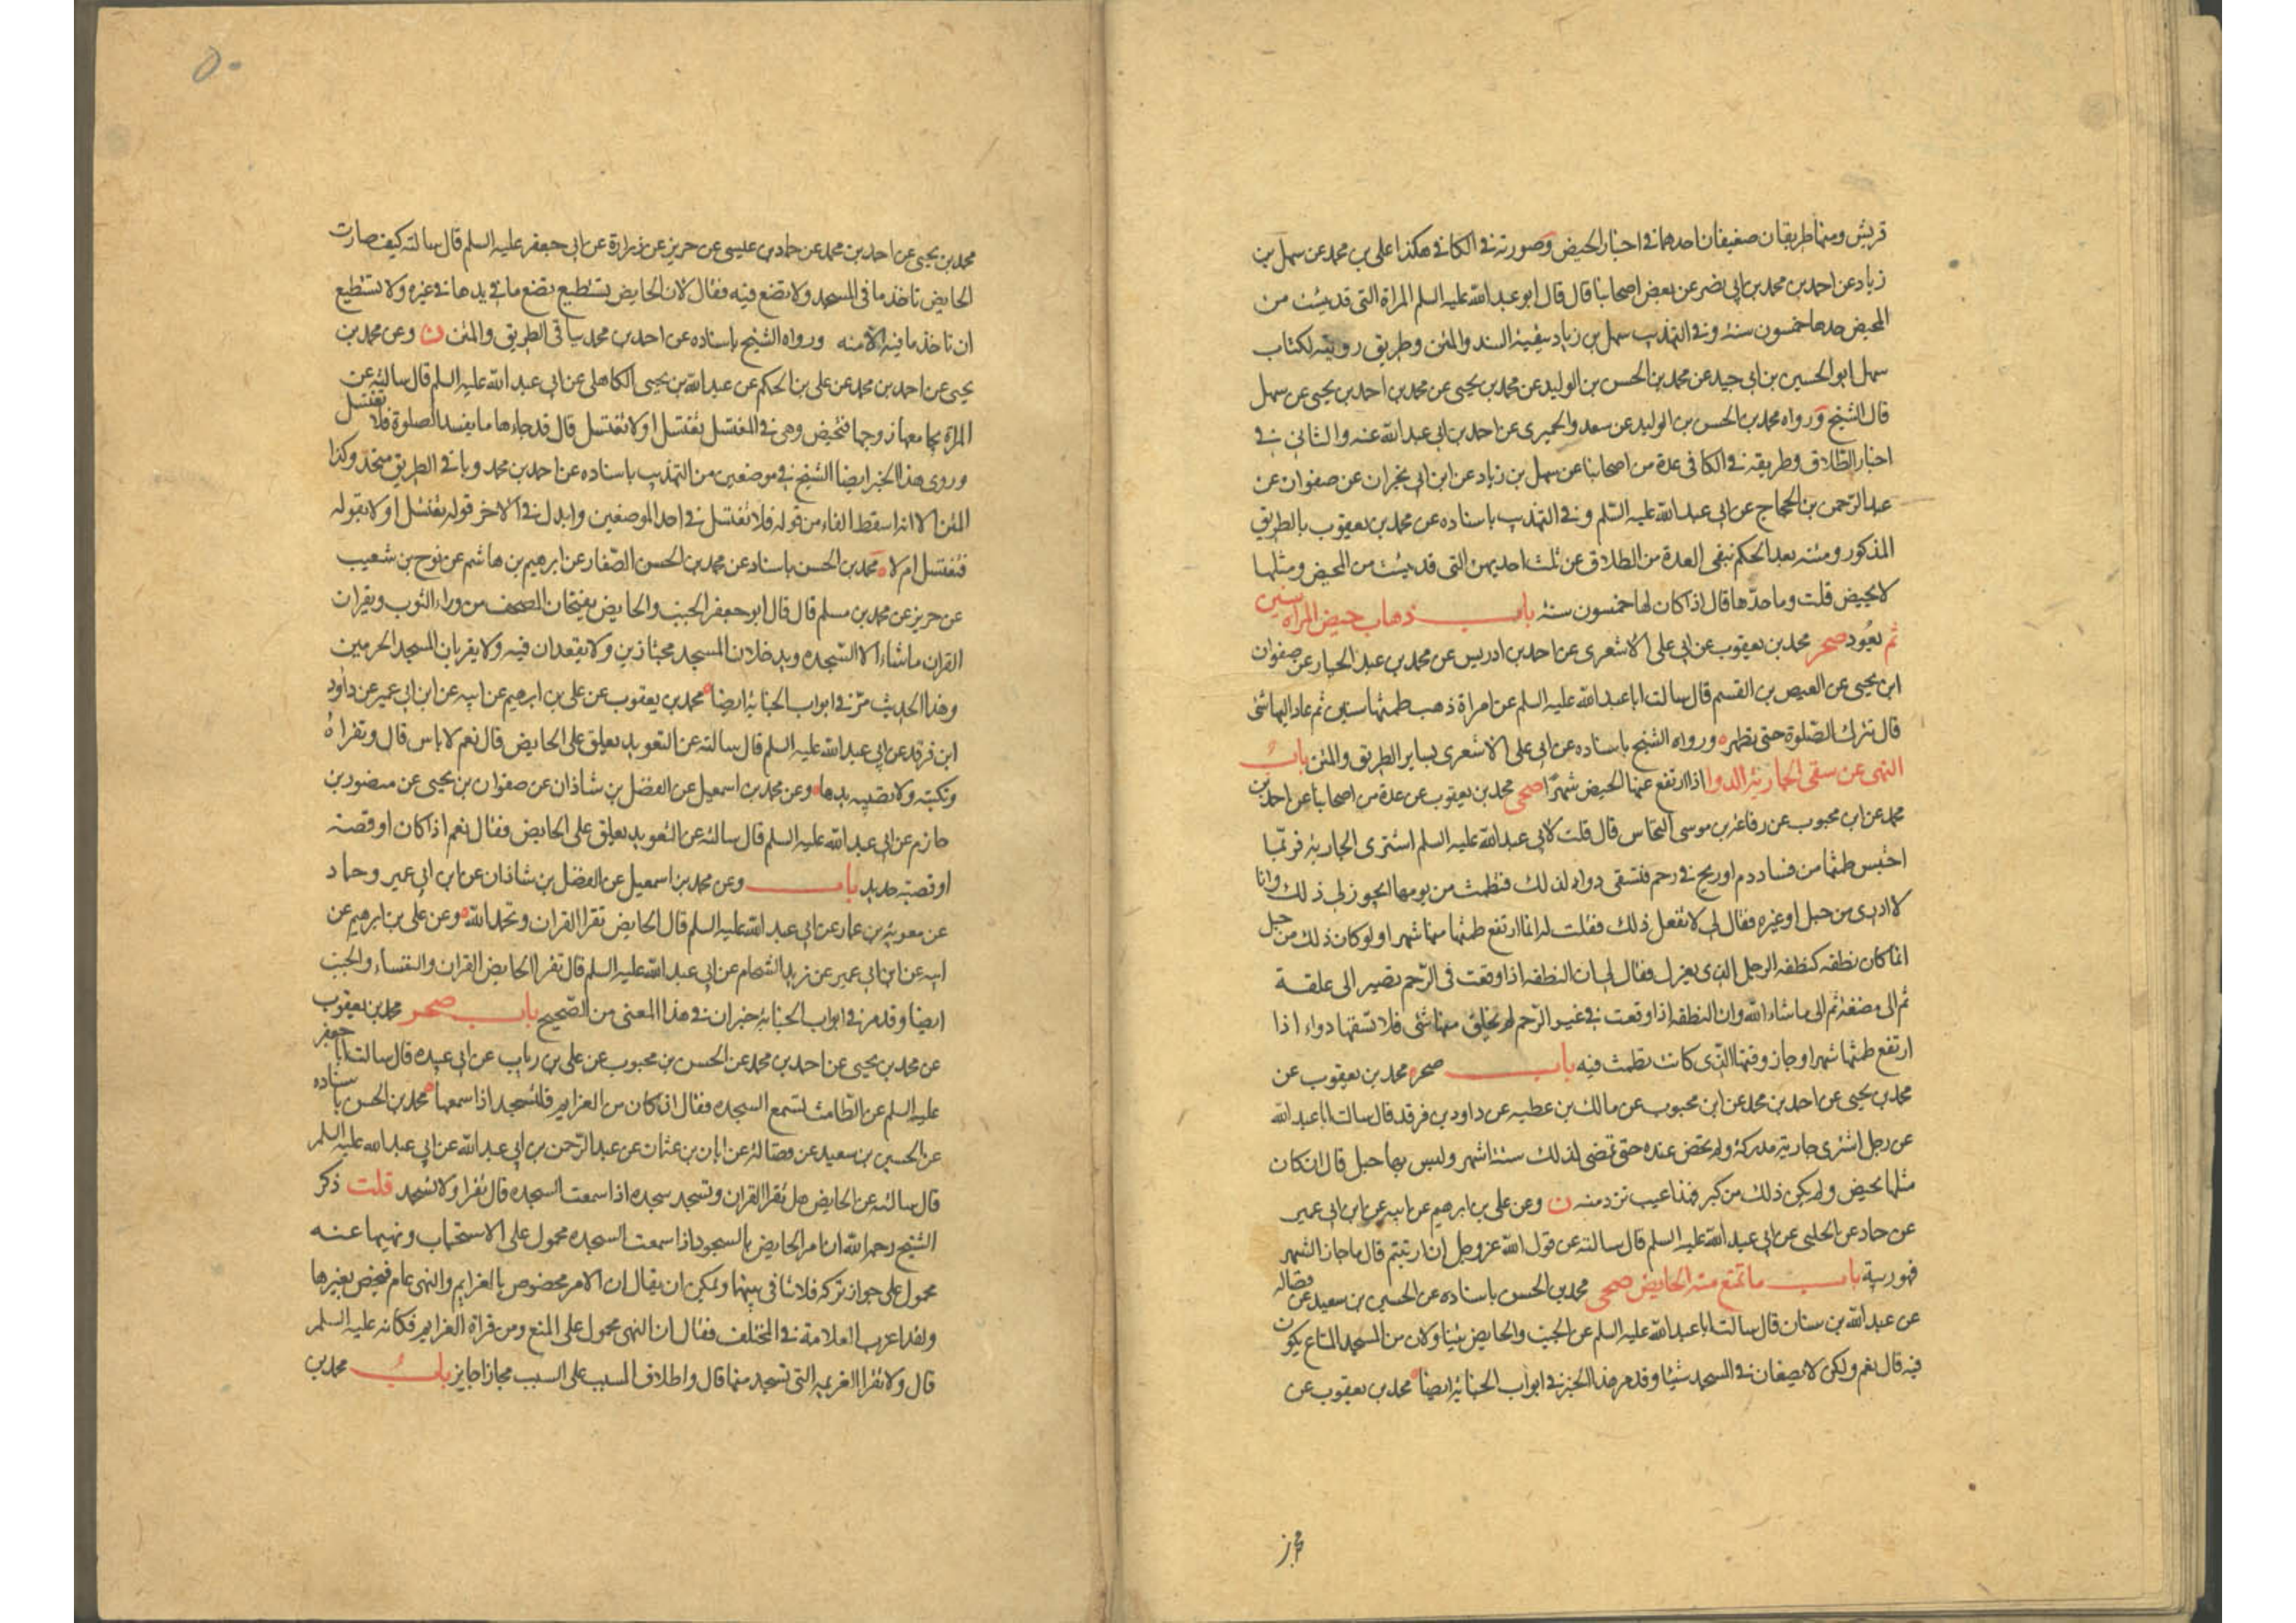 قريش ومنها طريقان ضعيفان احدهما في اخبار الحيض وصورته في الكافي هكذا علي بن محمد عن سهل بن
زياد عن احمد بن محمد بن ابي نصر عن بعض اصحابنا قال قال ابو عبد الله عليه السلم المراة التي قد يئست من
المحيض حدها خمسون سنة وفي التهذيب سهل بن زياد ببقية السند والمتن وطريق روايته لكتاب
سهل ابو الحسين بن ابي جيد عن محمد بن الحسن بن الوليد عن محمد بن يحيى عن محمد بن احمد بن يحيى عن سهل
قال الشيخ ورواه محمد بن الحسن بن الوليد عن سعد والحميري عن احمد بن ابي عبد الله عنه والثاني في
اخبار الطلاق وطريقه في الكافي عدة من اصحابنا عن سهل بن زياد عن ابن ابي نجران عن صفوان عن
عبد الرحمن بن الحجاج عن ابي عبد الله عليه السلم وفي التهذيب باسناده عن محمد بن يعقوب بالطريق
المذكور ومتنه بعد الحكم بنفي العدة من الطلاق عن ثلث احديهن التي قد يئست من المحيض ومثلها
لا يحيض قلت وما حدها قال اذا كان لها خمسون سنة باب ذهاب حيض المراة سنين
ثم يعود صحر محمد بن يعقوب عن ابي علي الاشعري عن احمد بن ادريس عن محمد بن عبد الجبار عن صفوان
ابن يحيى عن العيص بن القسم قال سالت ابا عبد الله عليه السلم عن امراة ذهب طمثها سنين ثم عاد اليها شئ
قال تترك الصلوة حتى تطهر ورواه الشيخ باسناده عن ابي علي الاشعري بساير الطريق والمتن باب
النهى عن سقى الجارية الدوا اذا ارتفع عنها الحيض شهرا صحى محمد بن يعقوب عن عدة من اصحابنا عن احمد بن
محمد عن ابن محبوب عن رفاعة بن موسى النخاس قال قلت لابي عبد الله عليه السلم اشترى الجارية فربما
احتبس طمثها من فساد دم او ريح في رحم فتسقى دواء لذلك فتطمث من يومها ايجوز لي ذلك وانا
لا ادرى من حبل او غيره فقال لي لا تفعل ذلك فقلت له انما ارتفع طمثها منها شهرا ولو كان ذلك من حبل
انما كان نطفه كنطفه الرجل الذى يعزل فقال لي ان النطفه اذا وقعت في الرحم تصير الى علقة
ثم الى مضغة ثم الى ما شاء الله وان النطفه اذا وقعت في غير الرحم لم يخلق منها شئ فلا تسقها دواء اذا
ارتفع طمثها شهرا وجاز وقتها الذى كانت تطمث فيه باب صحر محمد بن يعقوب عن
محمد بن يحيى عن احمد بن محمد عن ابن محبوب عن مالك بن عطيه عن داود بن فرقد قال سالت ابا عبد الله
عن رجل اشترى جارية مدركة ولم تحض عنده حتى تمضى لذلك ستة اشهر وليس بها حبل قال ان كان
مثلها تحيض ولم يكن ذلك من كبر فهذا عيب ترد منه ن وعن علي بن ابرهيم عن ابيه عن ابن ابي عمير
عن حماد عن الحلبي عن ابي عبد الله عليه السلم قال سالته عن قول الله عز وجل ان ارتبتم قال ما جاز الشهر
فهو ريبة باب ما تمنع منه الحايض صحى محمد بن الحسن باسناده عن الحسين بن سعيد عن فضاله
عن عبد الله بن سنان قال سالت ابا عبد الله عليه السلم عن الجنب والحايض يتناولان من المسجد المتاع يكون
فيه قال نعم ولكن لا يضعان في المسجد شيئا وقد مر هذا الخبر في ابواب الجنابة ايضا محمد بن يعقوب عن
٥٠
محمد بن يحيى عن احمد بن محمد عن حماد بن عيسى عن حريز عن زرارة عن ابي جعفر عليه السلم قال سالته كيف صارت
الحايض تاخذ ما في المسجد ولا تضع فيه فقال لان الحايض تستطيع تضع ما في يدها في غيره ولا تستطيع
ان تاخذ ما فيه الا منه ورواه الشيخ باسناده عن احمد بن محمد بباقي الطريق والمتن ن وعن محمد بن
يحيى عن احمد بن محمد عن علي بن الحكم عن عبد الله بن يحيى الكاهلي عن ابي عبد الله عليه السلم قال سالته عن
المراة يجامعها زوجها فتحيض وهي في المغتسل تغتسل او لا تغتسل قال قد جاءها ما يفسد الصلوة فلا تغتسل
وروى هذا الخبر ايضا الشيخ في موضعين من التهذيب باسناده عن احمد بن محمد وباقي الطريق متحد وكذا
المتن الا انه اسقط الفاء من قوله فلا تغتسل في احد الموضعين وابدل في الاخر قوله تغتسل او لا بقوله
فتغتسل ام لا محمد بن الحسن باسناده عن محمد بن الحسن الصفار عن ابرهيم بن هاشم عن نوح بن شعيب
عن حريز عن محمد بن مسلم قال قال ابو جعفر الجنب والحايض يفتحان المصحف من وراء الثوب ويقران
القران ما شاءا الا السجده ويدخلان المسجد مجتازين ولا يقعدان فيه ولا يقربان المسجد الحرمين
وهذا الحديث مر في ابواب الجنابة ايضا محمد بن يعقوب عن علي بن ابرهيم عن ابيه عن ابن ابي عمير عن داود
ابن فرقد عن ابي عبد الله عليه السلم قال سالته عن التعويذ يعلق على الحايض قال نعم لا باس قال وتقراه
وتكتبه ولا تصيبه يدها وعن محمد بن اسمعيل عن الفضل بن شاذان عن صفوان بن يحيى عن منصور بن
حازم عن ابي عبد الله عليه السلم قال سالته عن التعويذ يعلق على الحايض فقال نعم اذا كان او قصة
او قصبة حديد باب وعن محمد بن اسمعيل عن الفضل بن شاذان عن ابن ابي عمير وحماد
عن معوية بن عمار عن ابي عبد الله عليه السلم قال الحايض تقرا القران وتحمد الله وعن علي بن ابرهيم عن
ابيه عن ابن ابي عمير عن زيد الشحام عن ابي عبد الله عليه السلم قال تقرا الحايض القران والنفساء والجنب
ايضا وقد مر في ابواب الجنابة خبران في هذا المعنى من الصحيح باب صحر محمد بن يعقوب
عن محمد بن يحيى عن احمد بن محمد عن الحسن بن محبوب عن علي بن رباب عن ابي عبيده قال سالت ابا جعفر
عليه السلم عن الطامث تسمع السجده فقال ان كان من العزايم فلتسجد اذا سمعها محمد بن الحسن باسناده
عن الحسين بن سعيد عن فضالة عن ابان بن عثمان عن عبد الرحمن بن ابي عبد الله عن ابي عبد الله عليه السلم
قال سالته عن الحايض هل تقرا القران وتسجد سجده اذا سمعت السجده قال تقرا ولا تسجد قلت ذكر
الشيخ رحمه الله ان امر الحايض بالسجود اذا سمعت السجده محمول على الاستحباب ونهيها عنه
محمول على جواز تركه فلا تنافي بينهما ويمكن ان يقال ان الامر مخصوص بالعزايم والنهى عام فيخص بغيرها
ولقد اغرب العلامة في المختلف فقال ان النهى محمول على المنع من قراة العزايم فكانه عليه السلم
قال ولا تقرا العزيمه التي تسجد منها قال واطلاق المسبب على السبب مجازا جايز باب محمد بن